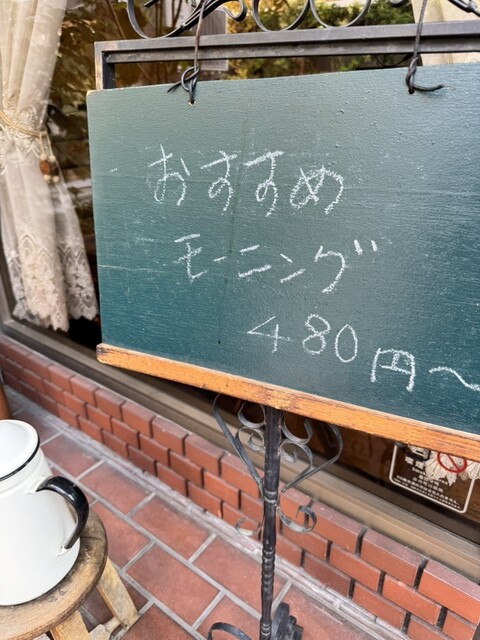 おすすめ
モーニング
480円〜